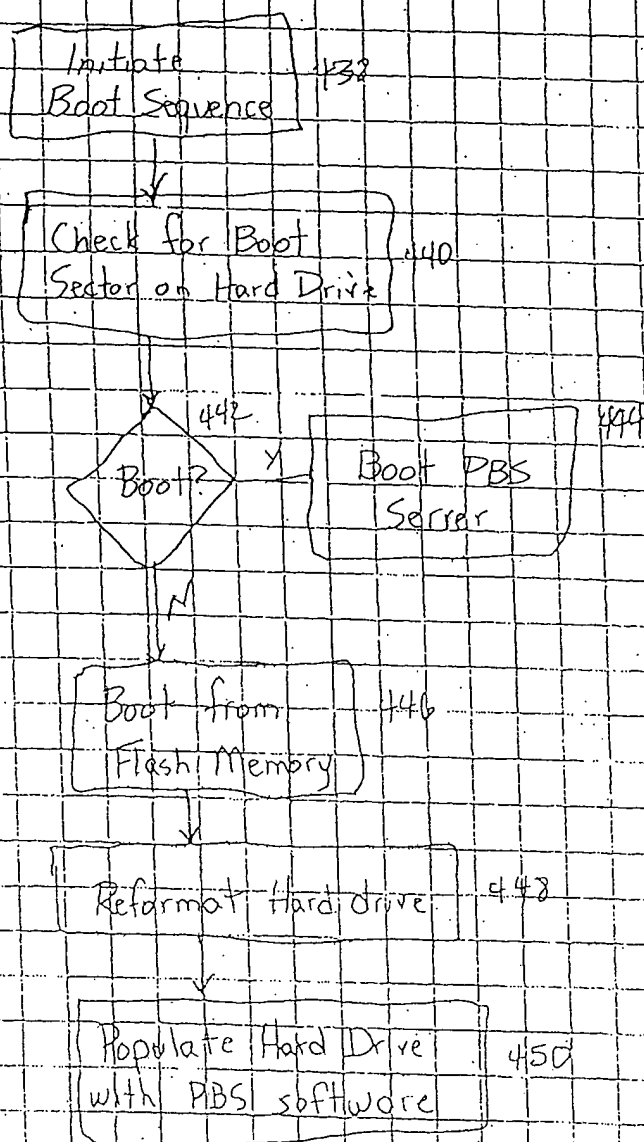 Initiate
Boot Sequence
438
Check for Boot
Sector on Hard Drive
440
442
Boot?
Y
Boot PBS
Server
444
N
Boot from
Flash Memory
446
Reformat Hard drive
448
Populate Hard Drive
with PBS software
450